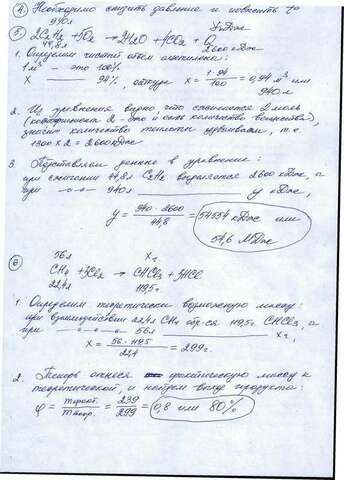 ④ Необходимо снизить давление и повысить t°
940л                                        y кДж
⑤ 2C₂H₂ + 5O₂ → 2H2O + 4CO₂ + Q
44,8л                                2600 кДж
1. Определим чистый объём ацетилена:
1 м³ - это 100%
x ——— 94%, откуда x = 1·94/100 = 0,94 м³ или
940л.
2. Из уравнения видно, что сжигается 2 моль
(коэффициент 2 - это и есть количество вещества),
значит количество теплоты удваиваем, т.е.
1300 x 2 = 2600 кДж
3. Подставляем данные в уравнение:
при сжигании 44,8л C₂H₂ выделяется 2600 кДж, а
при —〃—〃— 940л ——— y кДж,
y = 940 · 2600 / 44,8 = 54554 кДж или
54,6 МДж
56л                    x г.
⑥ CH₄ + 3Cl₂ → CHCl₃ + 3HCl
22,4л                119,5г.
1. Определим теоретически возможную массу:
при взаимодействии 22,4л CH₄ обр-ся 119,5г. CHCl₃, а
при —〃—〃—〃— 56л ——— x г.,
x = 56 · 119,5 / 22,4 = 299г.
2. Теперь отнеся фактическую массу к
теоретической, и найдем выход продукта:
φ = m факт. / m теор. = 239/299 = 0,8 или 80%